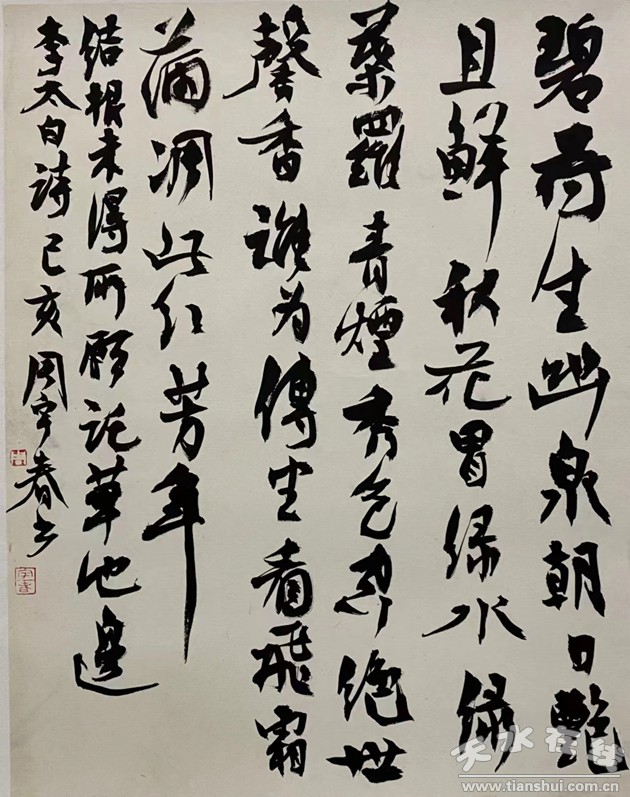 碧荷生幽泉朝日艷
且鲜秋花冒緑水緑
葉羅青煙秀色絶世
馨香誰为傳坐看飛霜
滿凋此红芳年
结根未得所願託華池邊
李太白詩己亥周宇春书
天水在线
www.tianshui.com.cn